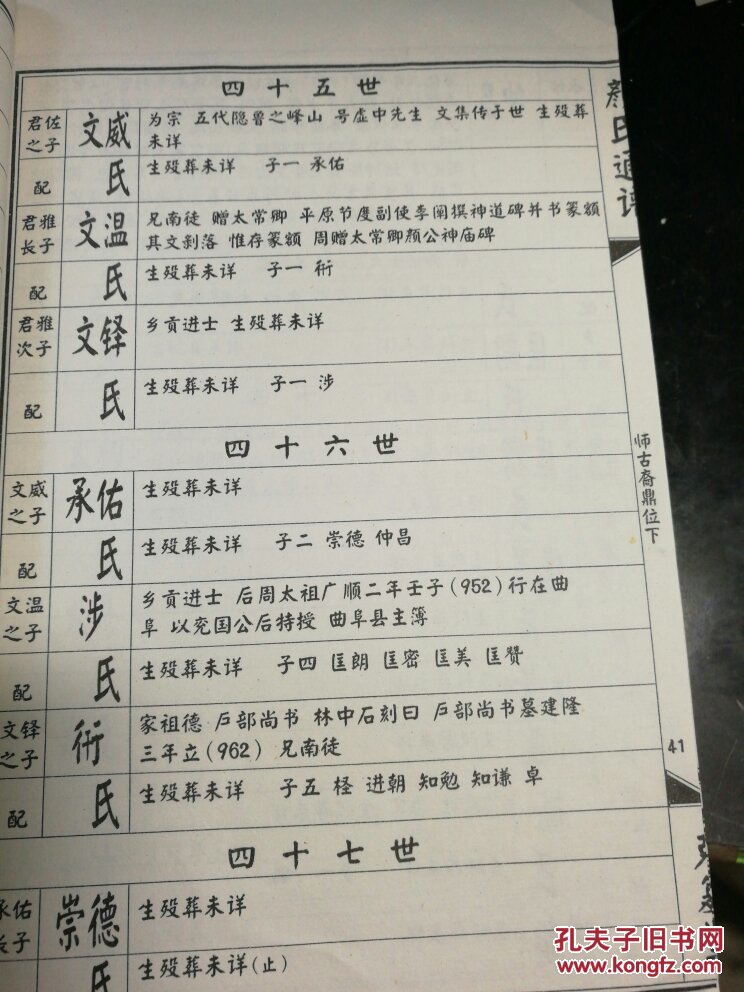 四十五世
君佐之子
文威
为宗 五代隐鲁之峰山 号虚中先生 文集传于世 生殁葬
未详
配
氏
生殁葬未详 子一 承佑
君雅长子
文温
兄南徒 赠太常卿 平原节度副使李阐撰神道碑并书篆额
其文剥落 惟存篆额 周赠太常卿颜公神庙碑
配
氏
生殁葬未详 子一 衎
君雅次子
文铎
乡贡进士 生殁葬未详
配
氏
生殁葬未详 子一 涉
四十六世
文威之子
承佑
生殁葬未详
配
氏
生殁葬未详 子二 崇德 仲昌
文温之子
涉
乡贡进士 后周太祖广顺二年壬子(952)行在曲
阜 以兖国公后特授 曲阜县主簿
配
氏
生殁葬未详 子四 匡朗 匡密 匡美 匡赞
文铎之子
衎
家祖德 户部尚书 林中石刻曰 户部尚书墓建隆
三年立(962) 兄南徒
配
氏
生殁葬未详 子五 柽 进朝 知勉 知谦 卓
四十七世
承佑长子
崇德
生殁葬未详
氏
生殁葬未详(止)
颜氏通谱
师古裔鼎位下
41
孔夫子旧书网
www.kongfz.com